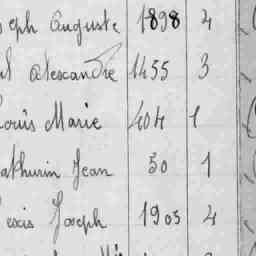 seph Auguste 1898 2
ul Alexandre 1455 3
Louis Marie 404 1
athurin Jean 50 1
lexis Joseph 1905 4